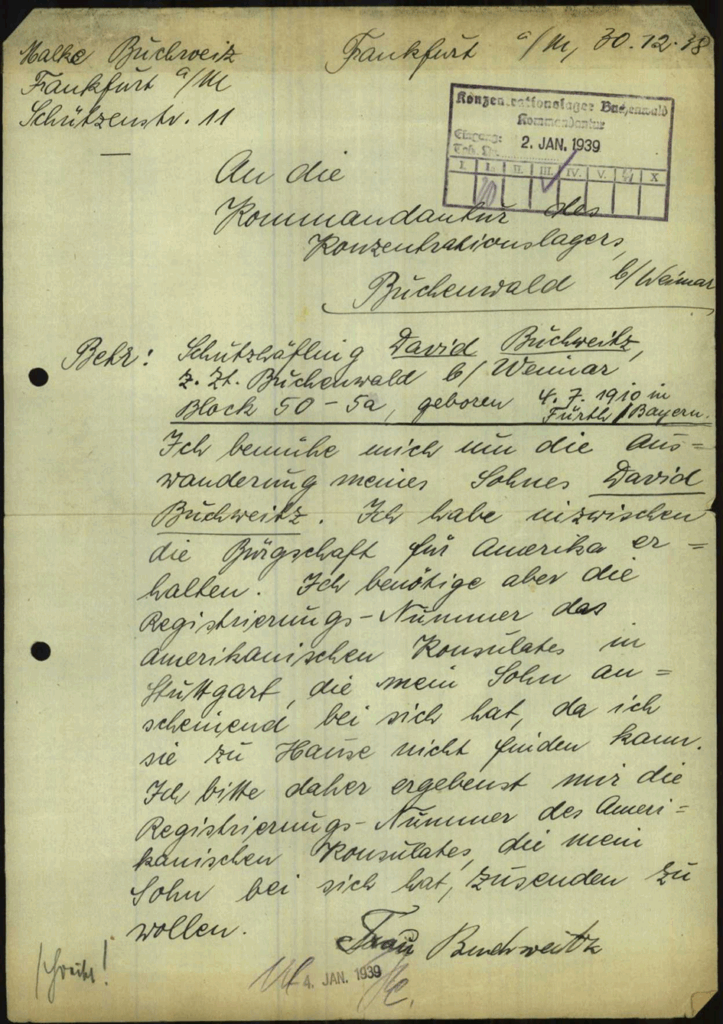 Malke Buchweitz
Frankfurt a/M
Schützenstr. 11
Frankfurt a/M, 30.12.38
Konzentrationslager Buchenwald
Kommandantur
Eingang: 2. JAN. 1939
I. II. III. IV. V. X
An die
Kommandantur des
Konzentrationslagers,
Buchenwald b/Weimar
Betr: Schutzhäftling David Buchweitz,
z. Zt. Buchenwald b/Weimar
Block 50 - 5a, geboren 4.7.1910 in
Fürth/Bayern.
Ich bemühe mich um die Aus=
wanderung meines Sohnes David
Buchweitz. Ich habe inzwischen
die Bürgschaft für Amerika er=
halten. Ich benötige aber die
Registrierungs-Nummer des
amerikanischen Konsulates in
Stuttgart, die mein Sohn an=
scheinend bei sich hat, da ich
sie zu Hause nicht finden kann.
Ich bitte daher ergebenst mir die
Registrierungs-Nummer des Ameri=
kanischen Konsulates, die mein
Sohn bei sich hat, zusenden zu
wollen.
Frau Buchweitz
4. JAN. 1939